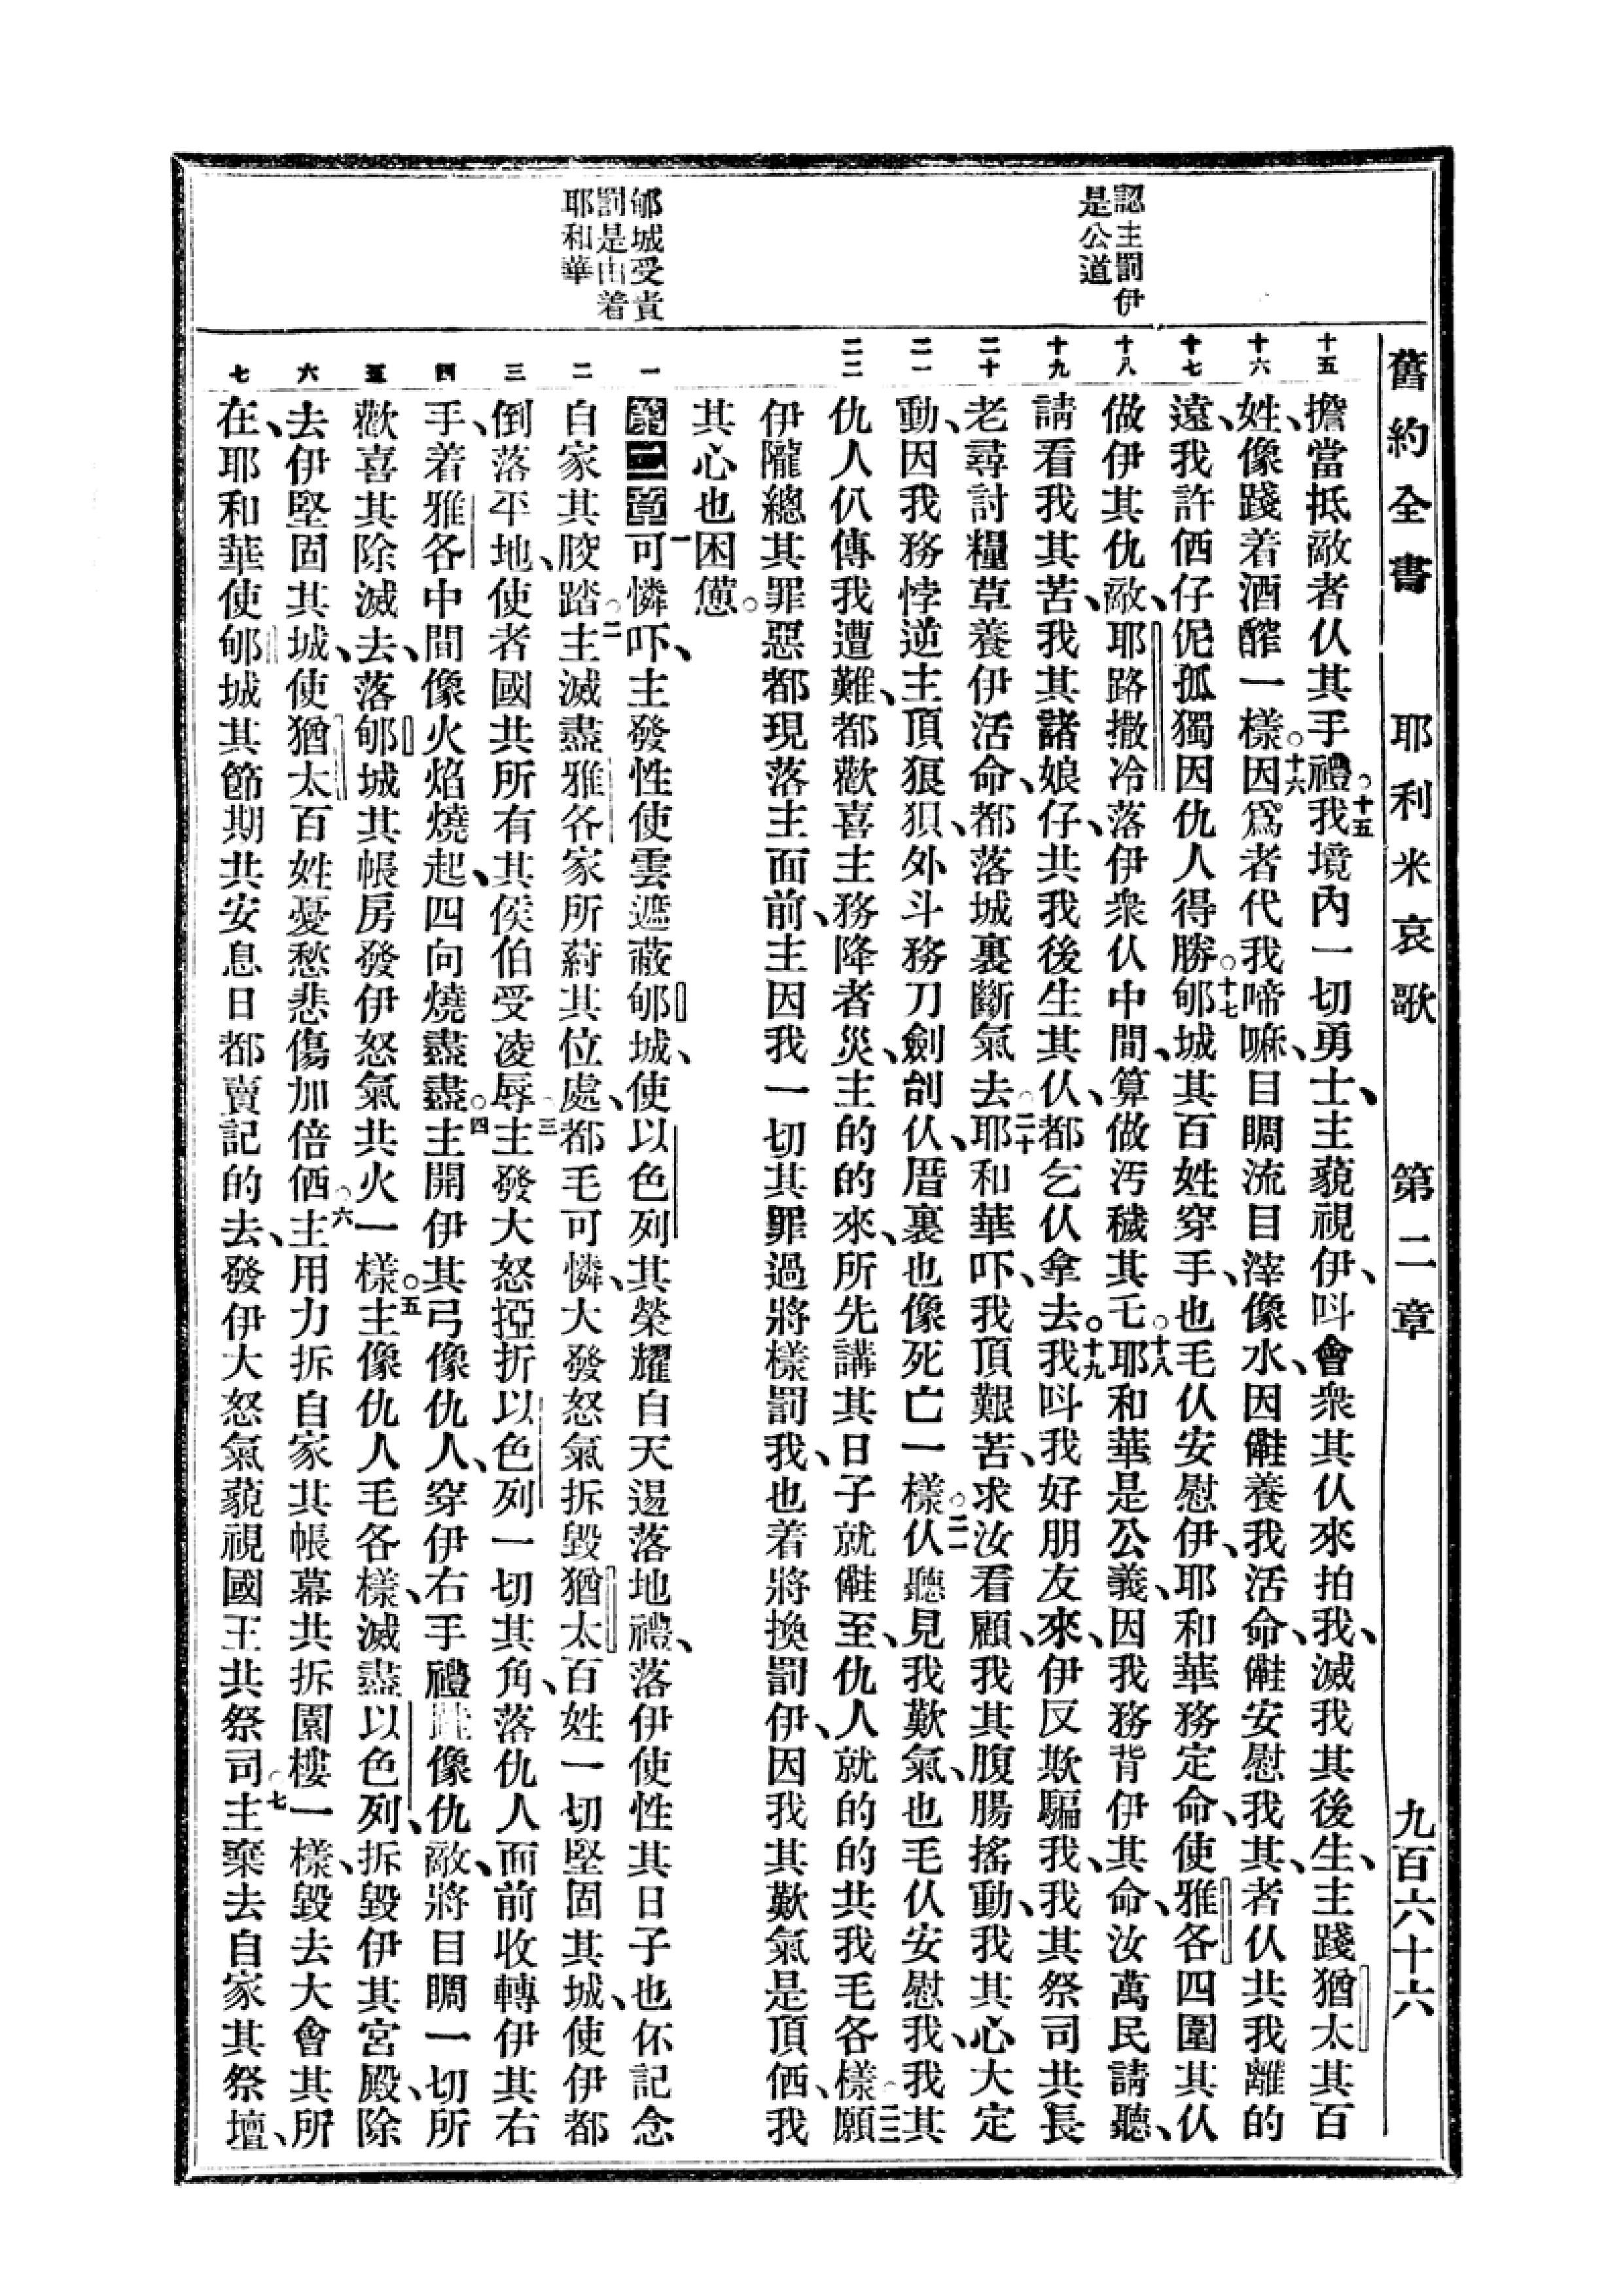 舊約全書 耶利米哀歌 第二章 九百六十六
認主罰伊
是公道
郇城受責
罰是由着
耶和華
十五 十六 十七 十八 十九 二十 二一 二二 一 二 三 四 五 六 七
擔當抵敵者仈其手禮。十五我境內一切勇士、主藐視伊、呌會衆其仈來拍我、滅我其後生、主踐猶太其百
姓、像踐着酒醡一樣。十六因爲者代我啼嘛、目睭流目滓像水、因𣍐養我活命、𣍐安慰我其、者仈共我離的
遠、我許俩仔伲孤獨因仇人得勝。十七郇城其百姓穿手、也毛仈安慰伊、耶和華務定命、使雅各四圍其仈
做伊其仇敵、耶路撒冷落伊衆仈中間、算做汚穢其乇。十八耶和華是公義、因我務背伊其命、汝萬民請聽、
請看我其苦、我其諸娘仔、共我後生其仈、都乞仈拿去。十九我呌我好朋友來、伊反欺騙我、我其祭司共長
老、尋討糧草養伊活命、都落城裏斷氣去。二十耶和華吓、我頂艱苦、求汝看顧、我其腹腸搖動、我其心大定
動、因我務悖逆主頂狼狽、外斗務刀劍刣仈、厝裏也像死亡一樣。二一仈聽見我歎氣、也毛仈安慰我、我其
仇人仈傳我遭難、都歡喜主務降者災、主的的來、所先講其日子就𣍐至、仇人就的的共我毛各樣。二二願
伊隴總其罪惡都現落主面前、主因我一切其罪過將樣罰我、也着將換罰伊、因我其歎氣是頂俩、我
其心也困憊。
第二章一可憐吓、主發性使雲遮蔽郇城、使以色列其榮耀自天逿落地禮、落伊使性其日子也伓記念
自家其骹踏。二主滅盡雅各家所蒔其位處、都毛可憐、大發怒氣拆毀猶太百姓一切堅固其城、使伊都
倒落平地、使者國共所有其侯伯受凌辱。三主發大怒掗折以色列一切其角、落仇人面前收轉伊其右
手、着雅各中間像火焰燒起、四向燒盡盡。四主開伊其弓像仇人、穿伊右手禮像仇敵、將目睭一切所
歡喜其除滅去、落郇城其帳房發伊怒氣共火一樣。五主像仇人毛各樣、滅盡以色列、拆毀伊其宮殿、除
去伊堅固其城、使猶太百姓憂愁悲傷加倍俩。六主用力拆自家其帳幕共拆園樓一樣、毀去大會其所
在、耶和華使郇城其節期共安息日都賣記的去、發伊大怒氣藐視國王共祭司。七主棄去自家其祭壇、